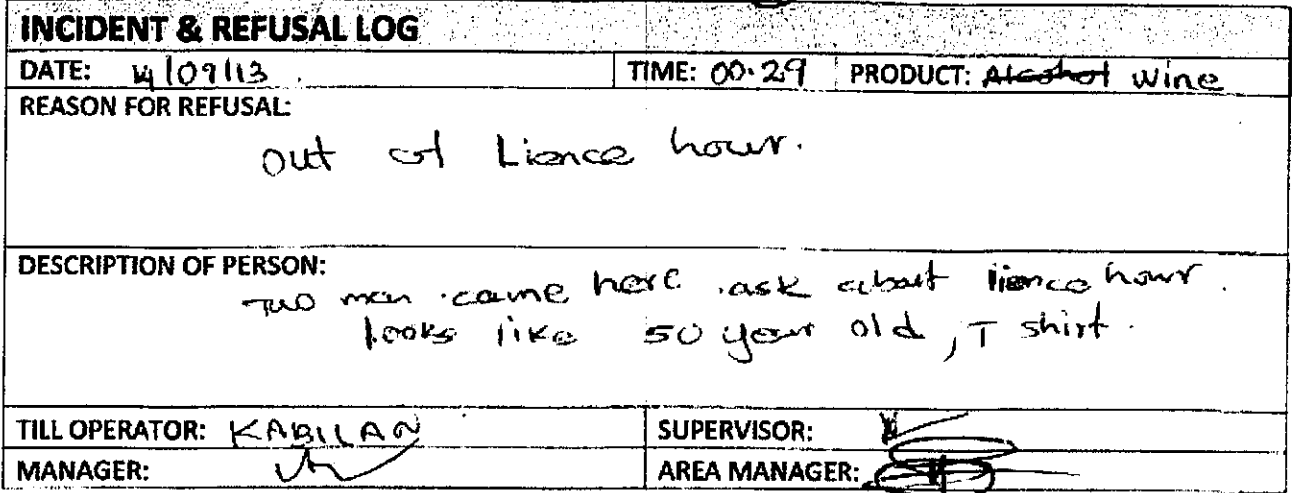 INCIDENT & REFUSAL LOG
DATE: 14/09/13. TIME: 00.29 PRODUCT: Alcohol Wine
REASON FOR REFUSAL:
out of Lience hour.
DESCRIPTION OF PERSON:
Two men came here ask about lience hour.
looks like 50 year old, T shirt.
TILL OPERATOR: KABILAN SUPERVISOR:
MANAGER: AREA MANAGER: